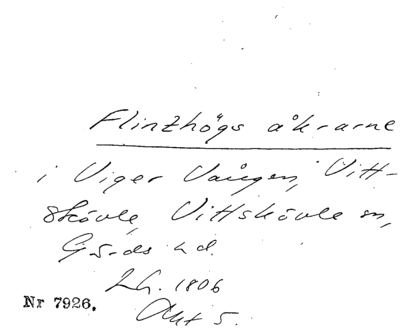 Flintzhögs åkrarne
i Viger Vången, Vitt-
skövle, Vittskövle sn,
Gärds hd.
Lh. 1806
Nr 7926.
Akt 5.